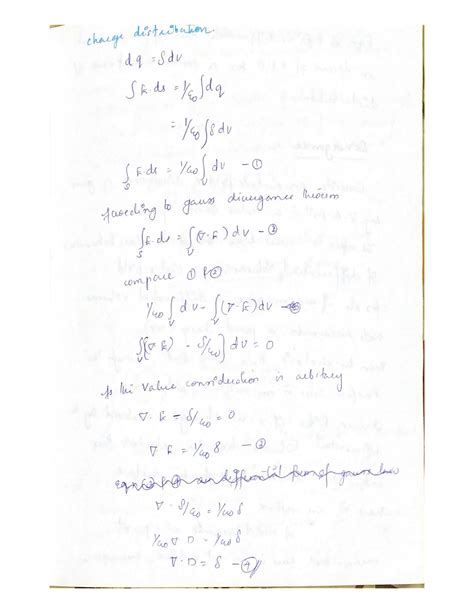 charge distribution.
dq = δdv
∫E.ds = 1/ε₀ ∫dq
= 1/ε₀ ∫δdv
∫_S E.ds = 1/ε₀ ∫_V dv — ①
According to gauss divergance theorem
∫_S E.ds = ∫_V (∇.E) dv — ②
compare ① & ②
1/ε₀ ∫_V dv - ∫_V (∇.E)dv
∫_V [(∇.E) - δ/ε₀] dv = 0
As the value consideration is arbitary
∇.E - δ/ε₀ = 0
∇.E = 1/ε₀ δ — ③
differential form of gauss law
∇. D/ε₀ = 1/ε₀ δ
1/ε₀ ∇ D = 1/ε₀ δ
∇.D = δ — ④